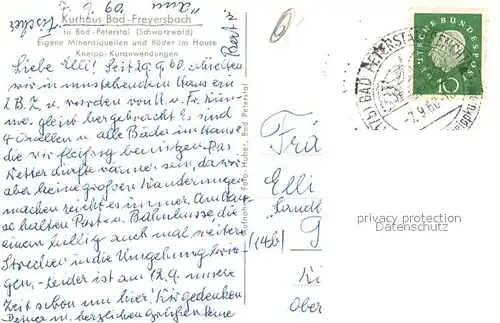 7. 9. 60.
Kurhaus Bad-Freyersbach
in Bad-Peterstal (Schwarzwald)
Eigene Mineralquellen und Bäder im Hause
Kneipp-Kuranwendungen
Liebe Elli! Seit 29.8.60
wir in umstehendem Haus ein
2 B. Z. u. werden von H. u. Fr.
gleich hergebracht. Es sind
4 Quellen u. alle Bäder im Hause
die wir fleissig benützen. Das
Wetter dürfte wärmer sein, da wir
aber keine großen Wanderungen
machen reicht es immer. Am Hau-
se halten Post u. Bahnbusse die
einem billig auch mal weitere
Strecken in die Umgebung brin-
gen, - leider ist am 12.9. unsere
Zeit schon um hier! Wir gedenken
Deiner m. herzlichen Grüßen
Aufnahme: Foto-Huber, Bad Peterstal
DEUTSCHE BUNDESPOST
10
BAD PETERSTAL
-7.9.60
Elli
(14b)
Ober
privacy protection
Datenschutz